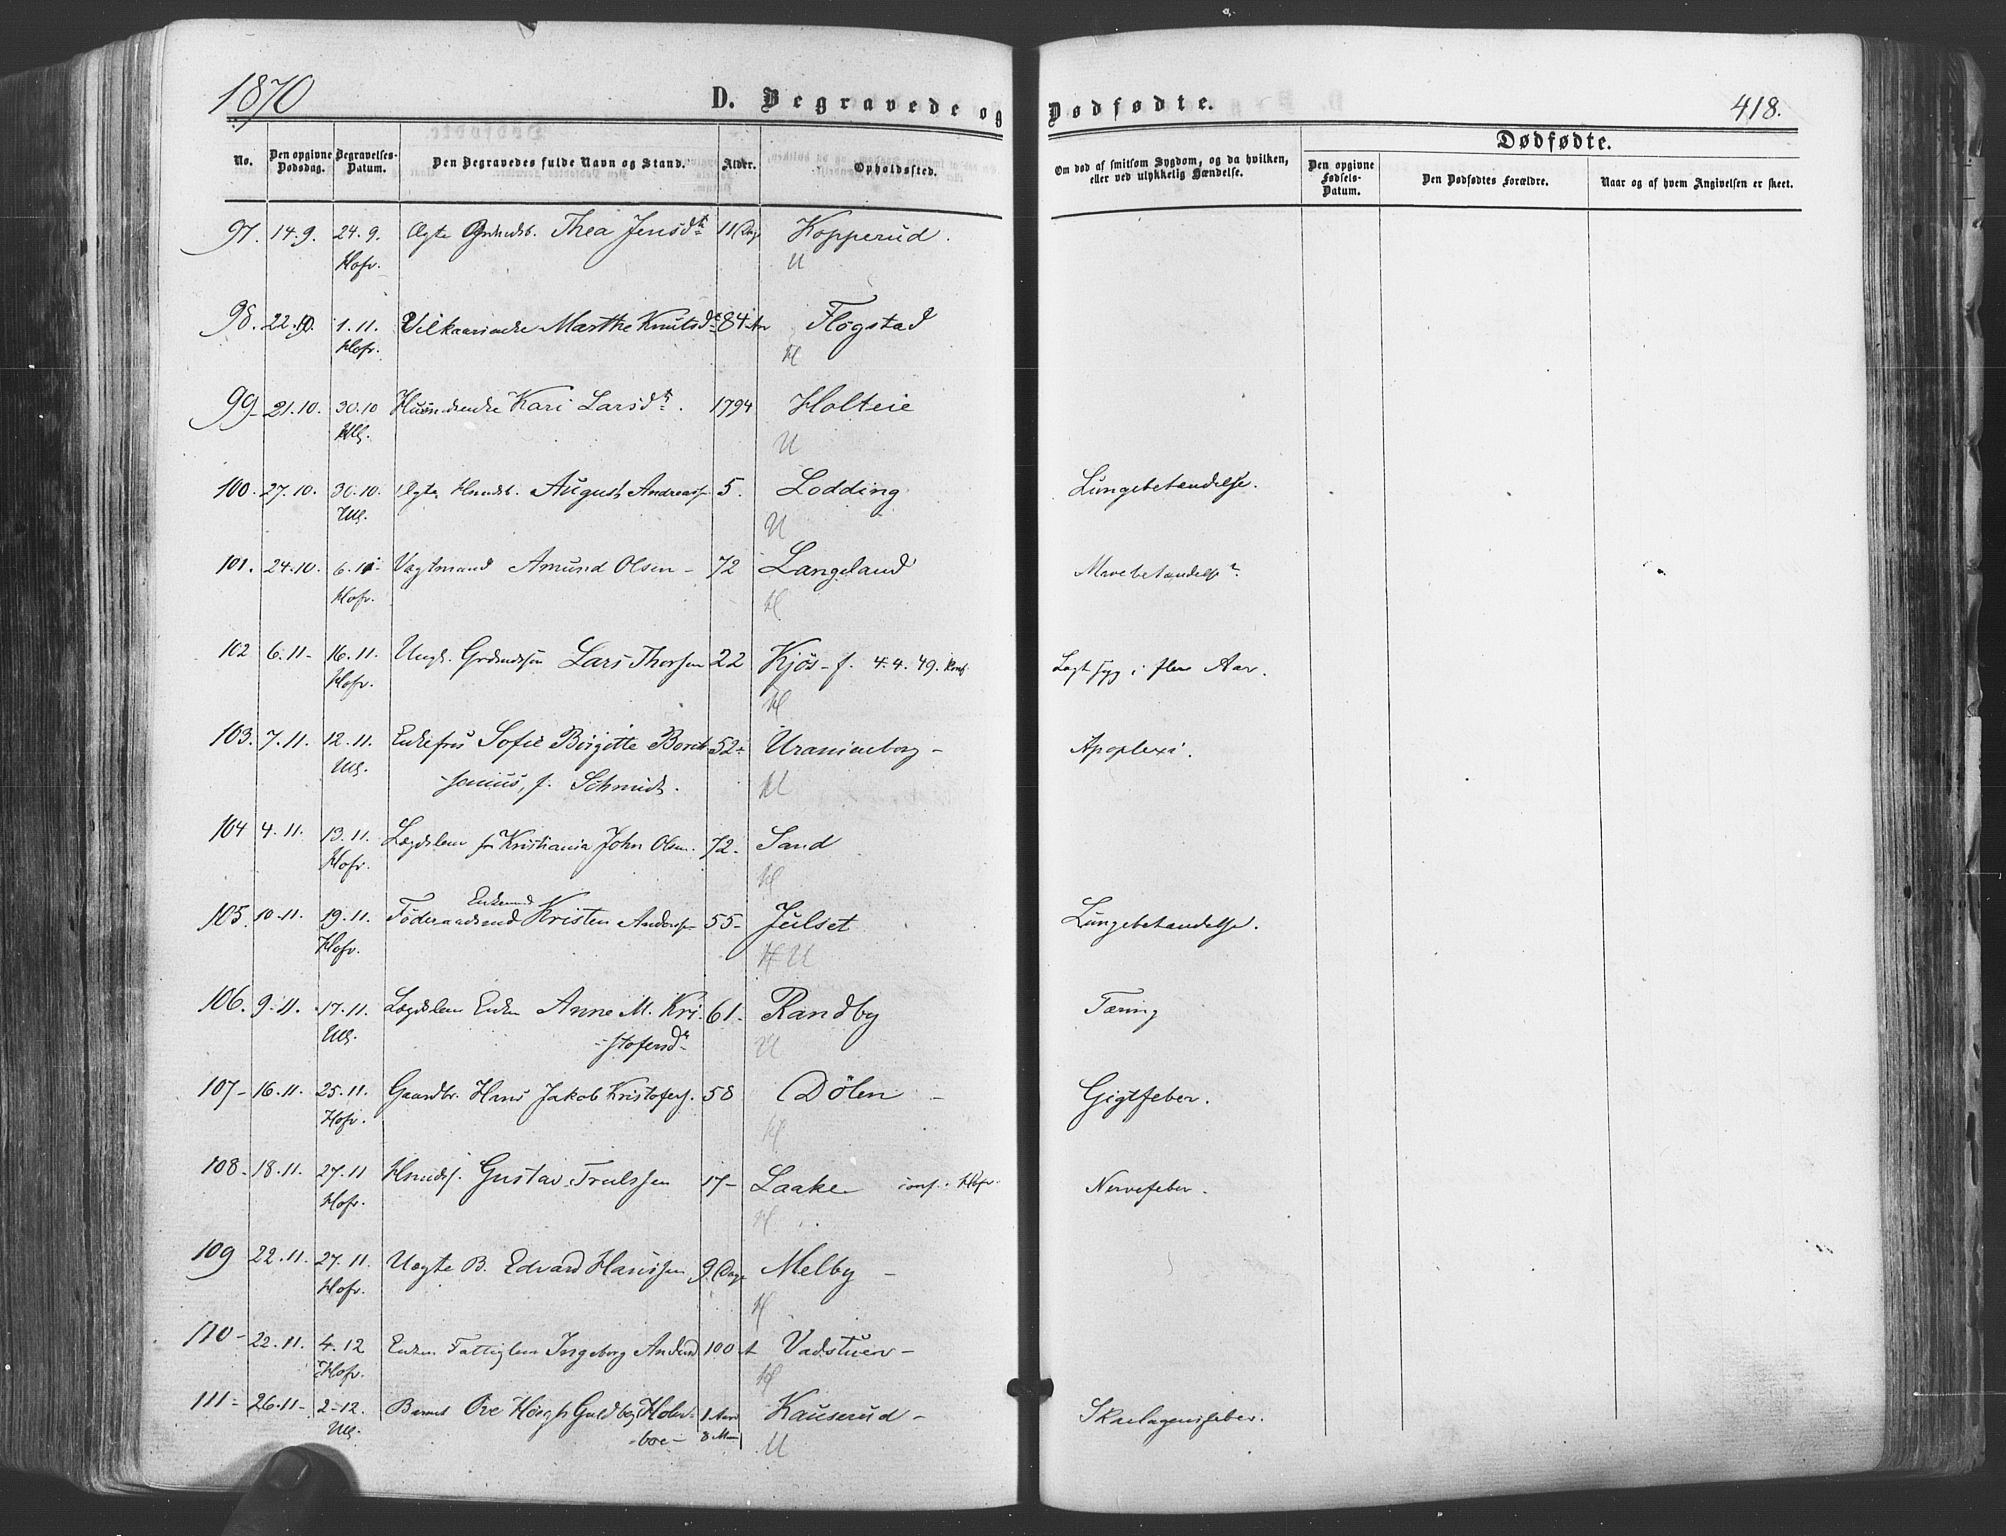 1870
D. Begravede og Dødfødte.
418.
Dødfødte.
No. Den opgivne Dødsdag. Begravelses-Datum. Den Begravedes fulde Navn og Stand. Alder. Opholdssted. Om død af smitsom Sygdom, og da hvilken, eller ved ulykkelig Hændelse. Den opgivne Fødsels-Datum. Den Dødfødtes Forældre. Naar og af hvem Angivelsen er skeet.
97. 14.9. 24.9. Ægte Thea Jensdtr 11 Dage Kopperud.
Hofv. U
98. 22.10. 1.11. Vilkaarienke Marthe Knutsdtr 84 Aar Flogstad
Hofv. H
99 21.10. 30.10 Kari Larsdtr. 1794 Holteie
Ull. U
100. 27.10. 30.10. Ægte Husmdsb. August Andreass. 5. Lodding Lungebetændelse.
Ull. U
101. 24.10. 6.11 Vagtmand Amund Olsen 72 Langeland Mavebetændelse?
Hofv. H
102 6.11 16.11. Ungk. Grdmdssøn Lars Thorsen 22 Kjøs f. 4.4.49. Konf. Lagt syg i flere Aar.
Hofv. H
103. 7.11. 12.11. Enkefru Sofie Birgitte 52 Uranienborg Apoplexi.
Ull. f. Schmidt. U
104 4.11. 13.11. Lægdslem fra Kristiania John Olsen. 72 Sand
Hofv. H
105. 10.11. 19.11. Føderaadsmd Enkemd Kristen Anderss. 55 Julset Lungebetændelse.
Hofv. H U
106. 9.11. 17.11. Lægdslem Enken Anne M. Kri- 61 Randby Tæring
Ull. -stofersdtr U
107 16.11. 25.11. Gaardbr. Hans Jakob Kristofers. 58 Dølen Gigtfeber.
Hofv. H
108 18.11. 27.11 Husmds. Gustav Trulssen 17 Laake conf. Hofv. Nervefeber.
Hofv. H
109 22.11. 27.11. Uægte B. Edvard Hanssen 9 Dage Melby
Hofv. H
110 22.11. 4.12 Enken Fattiglem Ingeborg Andersd 100 Vadstuen
Hofv. H
111 26.11 2-12. Barnet Ove Høegh Guldberg Holm- 1 Aar Kauserud Skarlagensfeber.
Ull. boe 8 M U